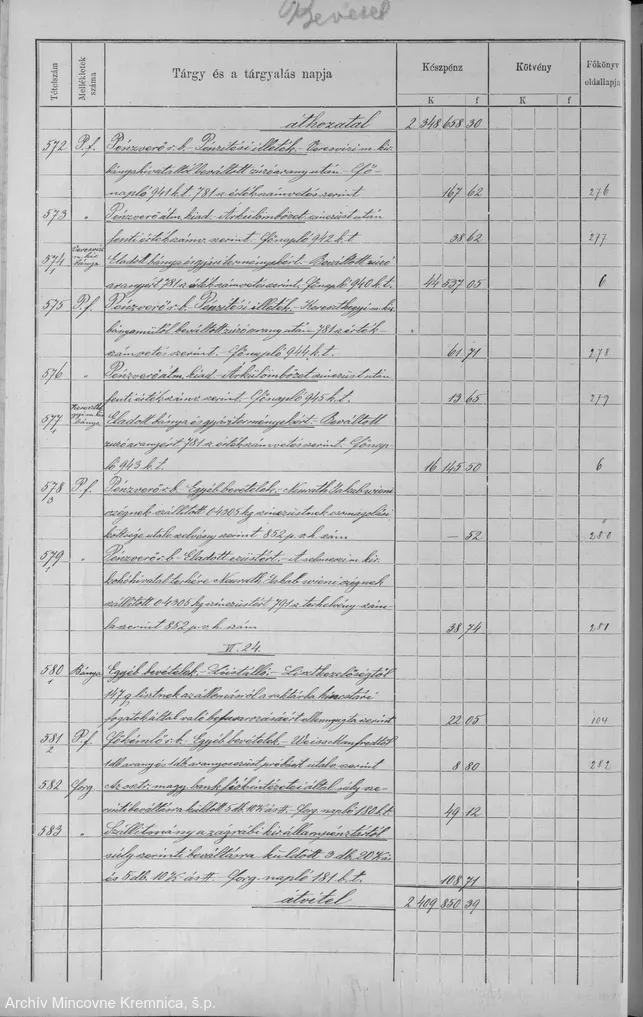 Bevétel
Tételszám
Mellékletek száma
Tárgy és a tárgyalás napja
Készpénz
Kötvény
Főkönyv oldallapja
K f
K f
áthozatal 2 348 658 30
572 P.f. Pénzverő r.b. - Pénzítési illeték. - Veresvizi m. kir.
bányahivataltól beváltott zúzóarany után - Fő-
napló 941 k.t. 781 a értékszámvetés szerint 167 62 276
573 " Pénzverő átm. kiad. - Árkülömbözet színezüst után
fenti értékszámv. szerint. Főnapló 942 k.t. 38 62 277
574 Veresvizi m. kir. bánya Eladott bánya és gyári terményekért. - Beváltott zúzó
aranyért 781 a. értékszámvetés szerint. Főnapló 940 k.t. 44 537 05 6
575 P.f. Pénzverő r.b. - Pénzítési illeték. - Kereszthegyi m. kir.
bányaműtől beváltott zúzóarany után - 781 a. érték-
számvetés szerint. - Főnapló 944 k.t. 61 71 278
576 " Pénzverő átm. kiad. - Árkülömbözet színezüst után
fenti értékszámv. szerint. Főnapló 945 k.t. 13 65 279
577 Kereszthegyi m. kir. bánya Eladott bánya és gyári terményekért. - Beváltott
zúzóaranyért 781 a. értékszámvetés szerint. Főnap-
ló 943 k.t. 16 145 50 6
578 3 P.f. Pénzverő r.b. - Egyéb bevételek. - Neurath Jakab wieni
czégnek szállított 0.4305 kg színezüstnek csomagolási
költsége utalv. szelvény szerint 852 p.v.h. szám — 52 280
579 " Pénzverő r.b. - Eladott ezüstért. - A selmeczi m. kir.
kohóhivatal terhére Neurath Jakab wieni czégnek
szállított 0.4305 kg színezüstért 791 a. terhelvény szám-
la szerint 852 p.v.h. szám 38 74 281
VI. 24.
580 1 Bánya Egyéb bevételek. - Lóistálló. - Lisztkezelőségtől
147 q lisztnek az állomásról a raktárba kincstári
fogatok által való befuvarozásáért ellennyugta szerint 22 05 104
581 2 P.f. Főkémlő r.b. - Egyéb bevételek. - Weiss Manfredtől
1 db arany és 1 db aranyezüst próbáért utalv. szerint 8 80 282
582 forg. Az osztr. magy. bank főbb intézetei által súly sze-
rinti beváltásra küldött 5 db. 10 K ás tt. - Forg. napló 180 k.t. 49 12
583 " Szállítmány a zágrábi kir. állampénztártól
súly szerinti beváltásra küldött 3 db. 20 K ás
és 5 db. 10 K ás tt. - Forg. napló 181 k.t. 108 71
átvitel 2 409 850 39
Archív Mincovne Kremnica, š.p.